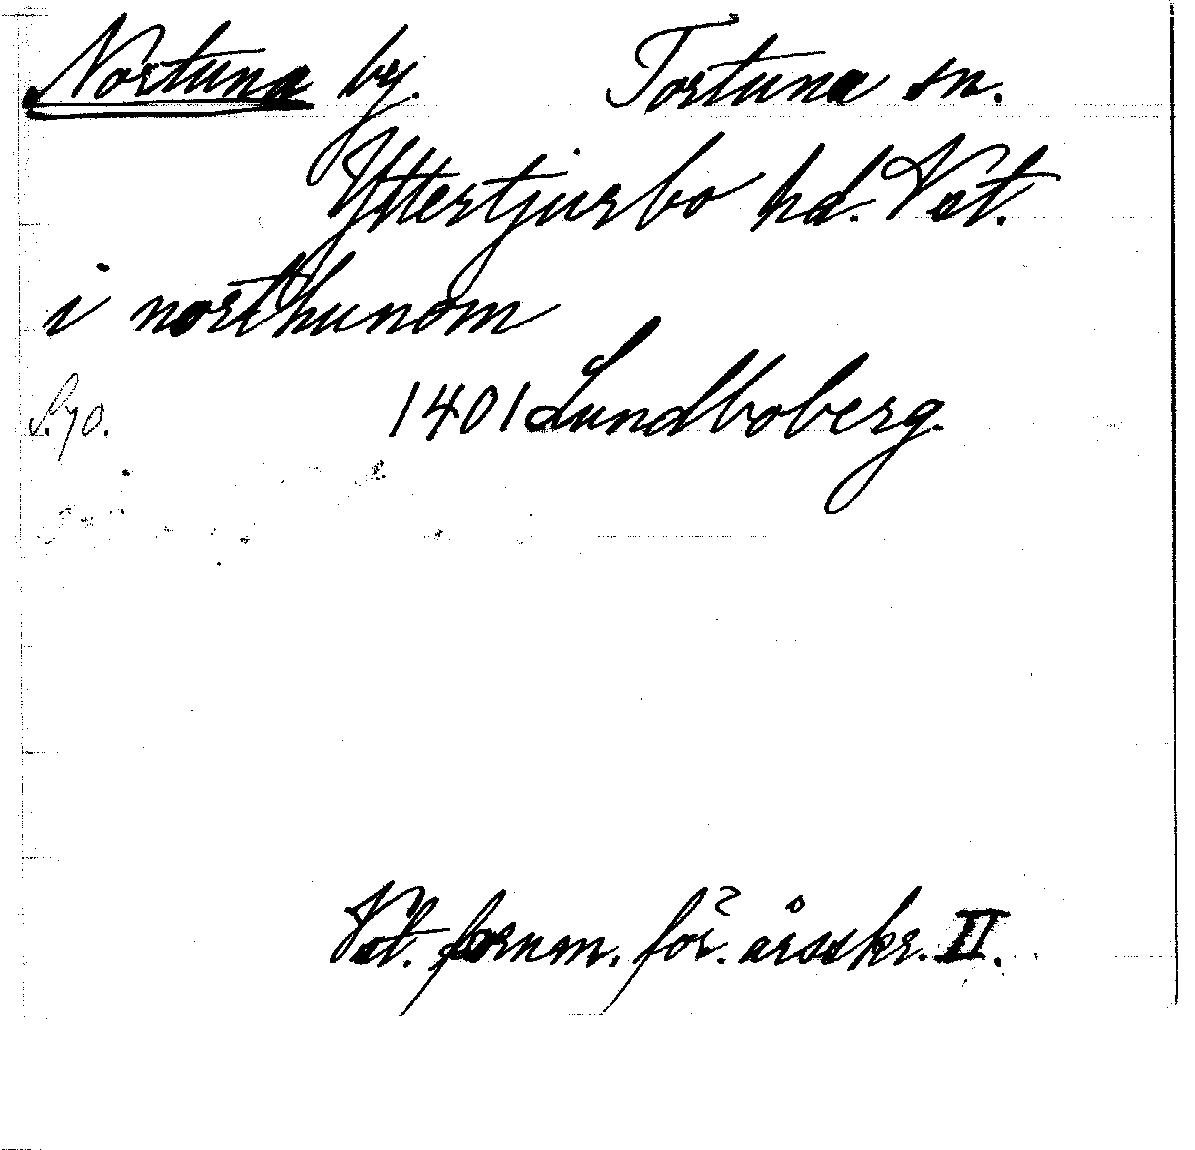 Nortuna by. Tortuna sn.
Yttertjurbo hd. Vst.
i northunom
S. 70. 1401 Lundboberg.
Vst. fornm. för. årsskr. II.